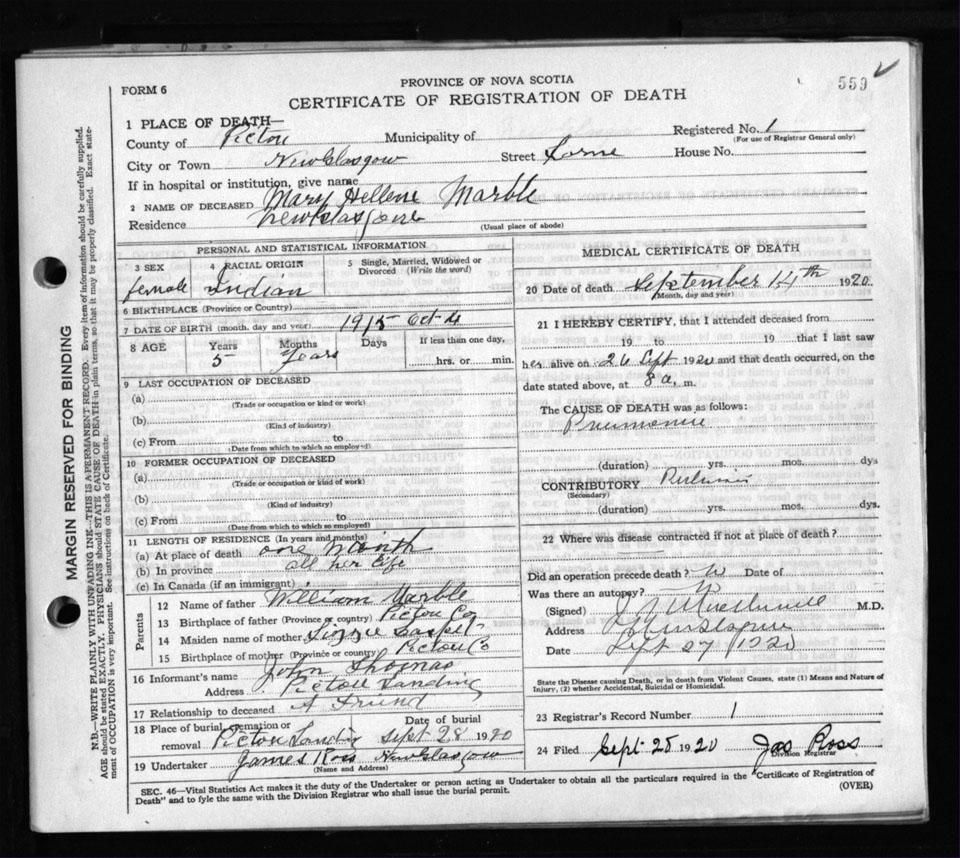 FORM 6
PROVINCE OF NOVA SCOTIA
559
CERTIFICATE OF REGISTRATION OF DEATH
1 PLACE OF DEATH—
County of Pictou Municipality of Registered No. 1
(For use of Registrar General only)
City or Town New Glasgow Street Lorne House No.
If in hospital or institution, give name
2 NAME OF DECEASED Mary Hellene Marble
Residence New Glasgow (Usual place of abode)
PERSONAL AND STATISTICAL INFORMATION
3 SEX 4 RACIAL ORIGIN 5 Single, Married, Widowed or Divorced (Write the word)
female Indian
6 BIRTHPLACE (Province or Country)
7 DATE OF BIRTH (month, day and year) 1915 Oct 4
8 AGE Years Months Days If less than one day,
5 years hrs. or min.
9 LAST OCCUPATION OF DECEASED
(a)
(Trade or occupation or kind or work)
(b)
(Kind of industry)
(c) From to
(Date from which to which so employed)
10 FORMER OCCUPATION OF DECEASED
(a)
(Trade or occupation or kind or work)
(b)
(Kind of industry)
(c) From to
(Date from which to which so employed)
11 LENGTH OF RESIDENCE (In years and months)
(a) At place of death one month
(b) In province all her life
(c) In Canada (if an immigrant)
Parents
12 Name of father William Marble
13 Birthplace of father (Province or country) Pictou Co
14 Maiden name of mother Lizzie
15 Birthplace of mother (Province or country) Pictou Co
16 Informant's name John Thomas
Address Pictou Landing
17 Relationship to deceased A Friend
18 Place of burial, cremation or removal Pictou Landing Date of burial Sept 28 1920
19 Undertaker James Ross New Glasgow
(Name and Address)
MEDICAL CERTIFICATE OF DEATH
20 Date of death September 1920
(Month, day and year)
21 I HEREBY CERTIFY, that I attended deceased from
19 to 19 that I last saw
her alive on 26 Sept 1920 and that death occurred, on the
date stated above, at 8 a. m.
The CAUSE OF DEATH was as follows:
Pneumonia
(duration) yrs. mos. dys
CONTRIBUTORY
(Secondary)
(duration) yrs. mos. dys.
22 Where was disease contracted if not at place of death?
Did an operation precede death? no Date of
Was there an autopsy? no
(Signed) M.D.
Address New Glasgow
Date Sept 27 1920
State the Disease causing Death, or in death from Violent Causes, state (1) Means and Nature of
Injury, (2) whether Accidental, Suicidal or Homicidal.
23 Registrar's Record Number 1
24 Filed Sept 28 1920 Jas Ross
Division Registrar
SEC. 46—Vital Statistics Act makes it the duty of the Undertaker or person acting as Undertaker to obtain all the particulars required in the "Certificate of Registration of
Death" and to fyle the same with the Division Registrar who shall issue the burial permit. (OVER)
MARGIN RESERVED FOR BINDING
N.B.—WRITE PLAINLY WITH UNFADING INK—THIS IS A PERMANENT RECORD. Every item of information should be carefully supplied.
AGE should be stated EXACTLY. PHYSICIANS should STATE CAUSE OF DEATH in plain terms, so that it may be properly classified. Exact statement of OCCUPATION is very important. See instructions on back of Certificate.